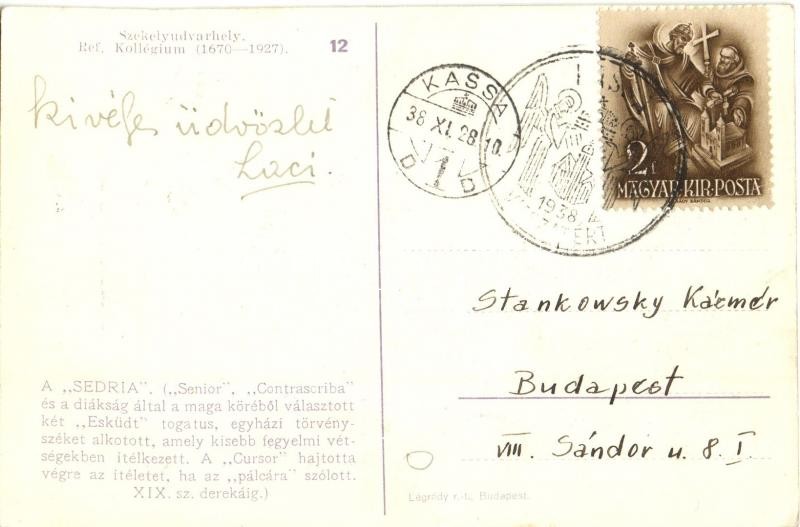 Székelyudvarhely.
Ref. Kollégium (1670—1927).
12
kivéles üdvözlet
Laci.
A „SEDRIA". („Senior", „Contrascriba"
és a diákság által a maga köréből választott
két „Esküdt" togatus, egyházi törvény-
széket alkotott, amely kisebb fegyelmi vét-
ségekben ítélkezett. A „Cursor" hajtotta
végre az ítéletet, ha az „pálcára" szólott.
XIX. sz. derekáig.)
KASSA
38 XI. 28 10
D 1 D
1938
VISSZATÉRT
2f
MAGYAR·KIR·POSTA
Stankowsky Kázmér
Budapest
VIII. Sándor u. 8. I.
Légrády r.-t., Budapest.